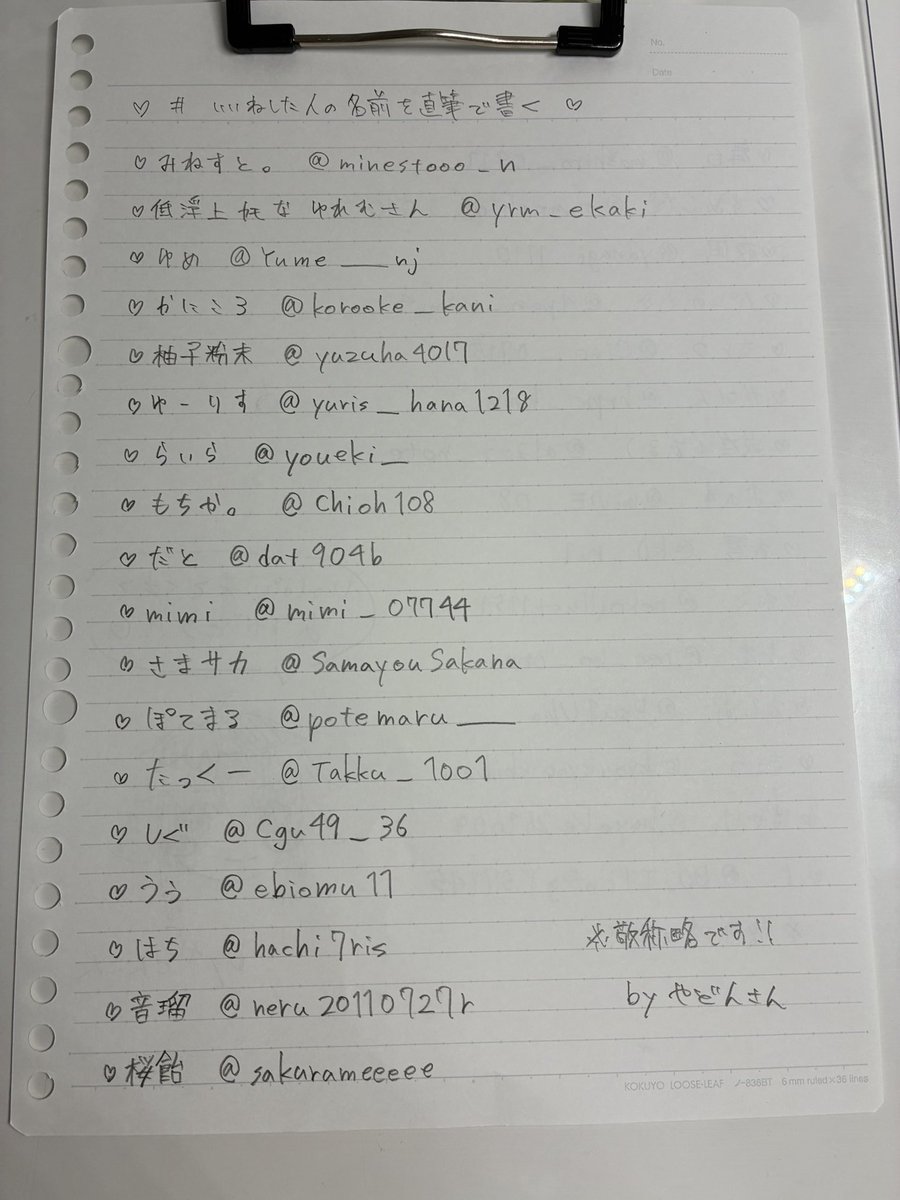 No.
Date
♡ # いいねした人の名前を直筆で書く ♡
♡ みねすと。 @minestooo_n
♡ 低浮上 なゆれむさん @yrm_ekaki
♡ ゆめ @Yume___nj
♡ かにころ @korooke_kani
♡ 柚子粉末 @yuzuha4017
♡ ゆーりす @yuris_hana1218
♡ らいら @youeki_
♡ もちか。 @Chioh108
♡ だと @dat904b
♡ mimi @mimi_07744
♡ さまサカ @SamayouSakana
♡ ぽてまる @potemaru____
♡ たっくー @Takku_1001
♡ しぐ @Cgu49_36
♡ うぅ @ebiomu11
♡ はち @hachi7ris
♡ 音瑠 @neru20110727r
♡ 桜飴 @sakurameeeee
※敬称略です!!
by やどんさん
KOKUYO LOOSE-LEAF ノ-836BT 6mm ruled×36 lines